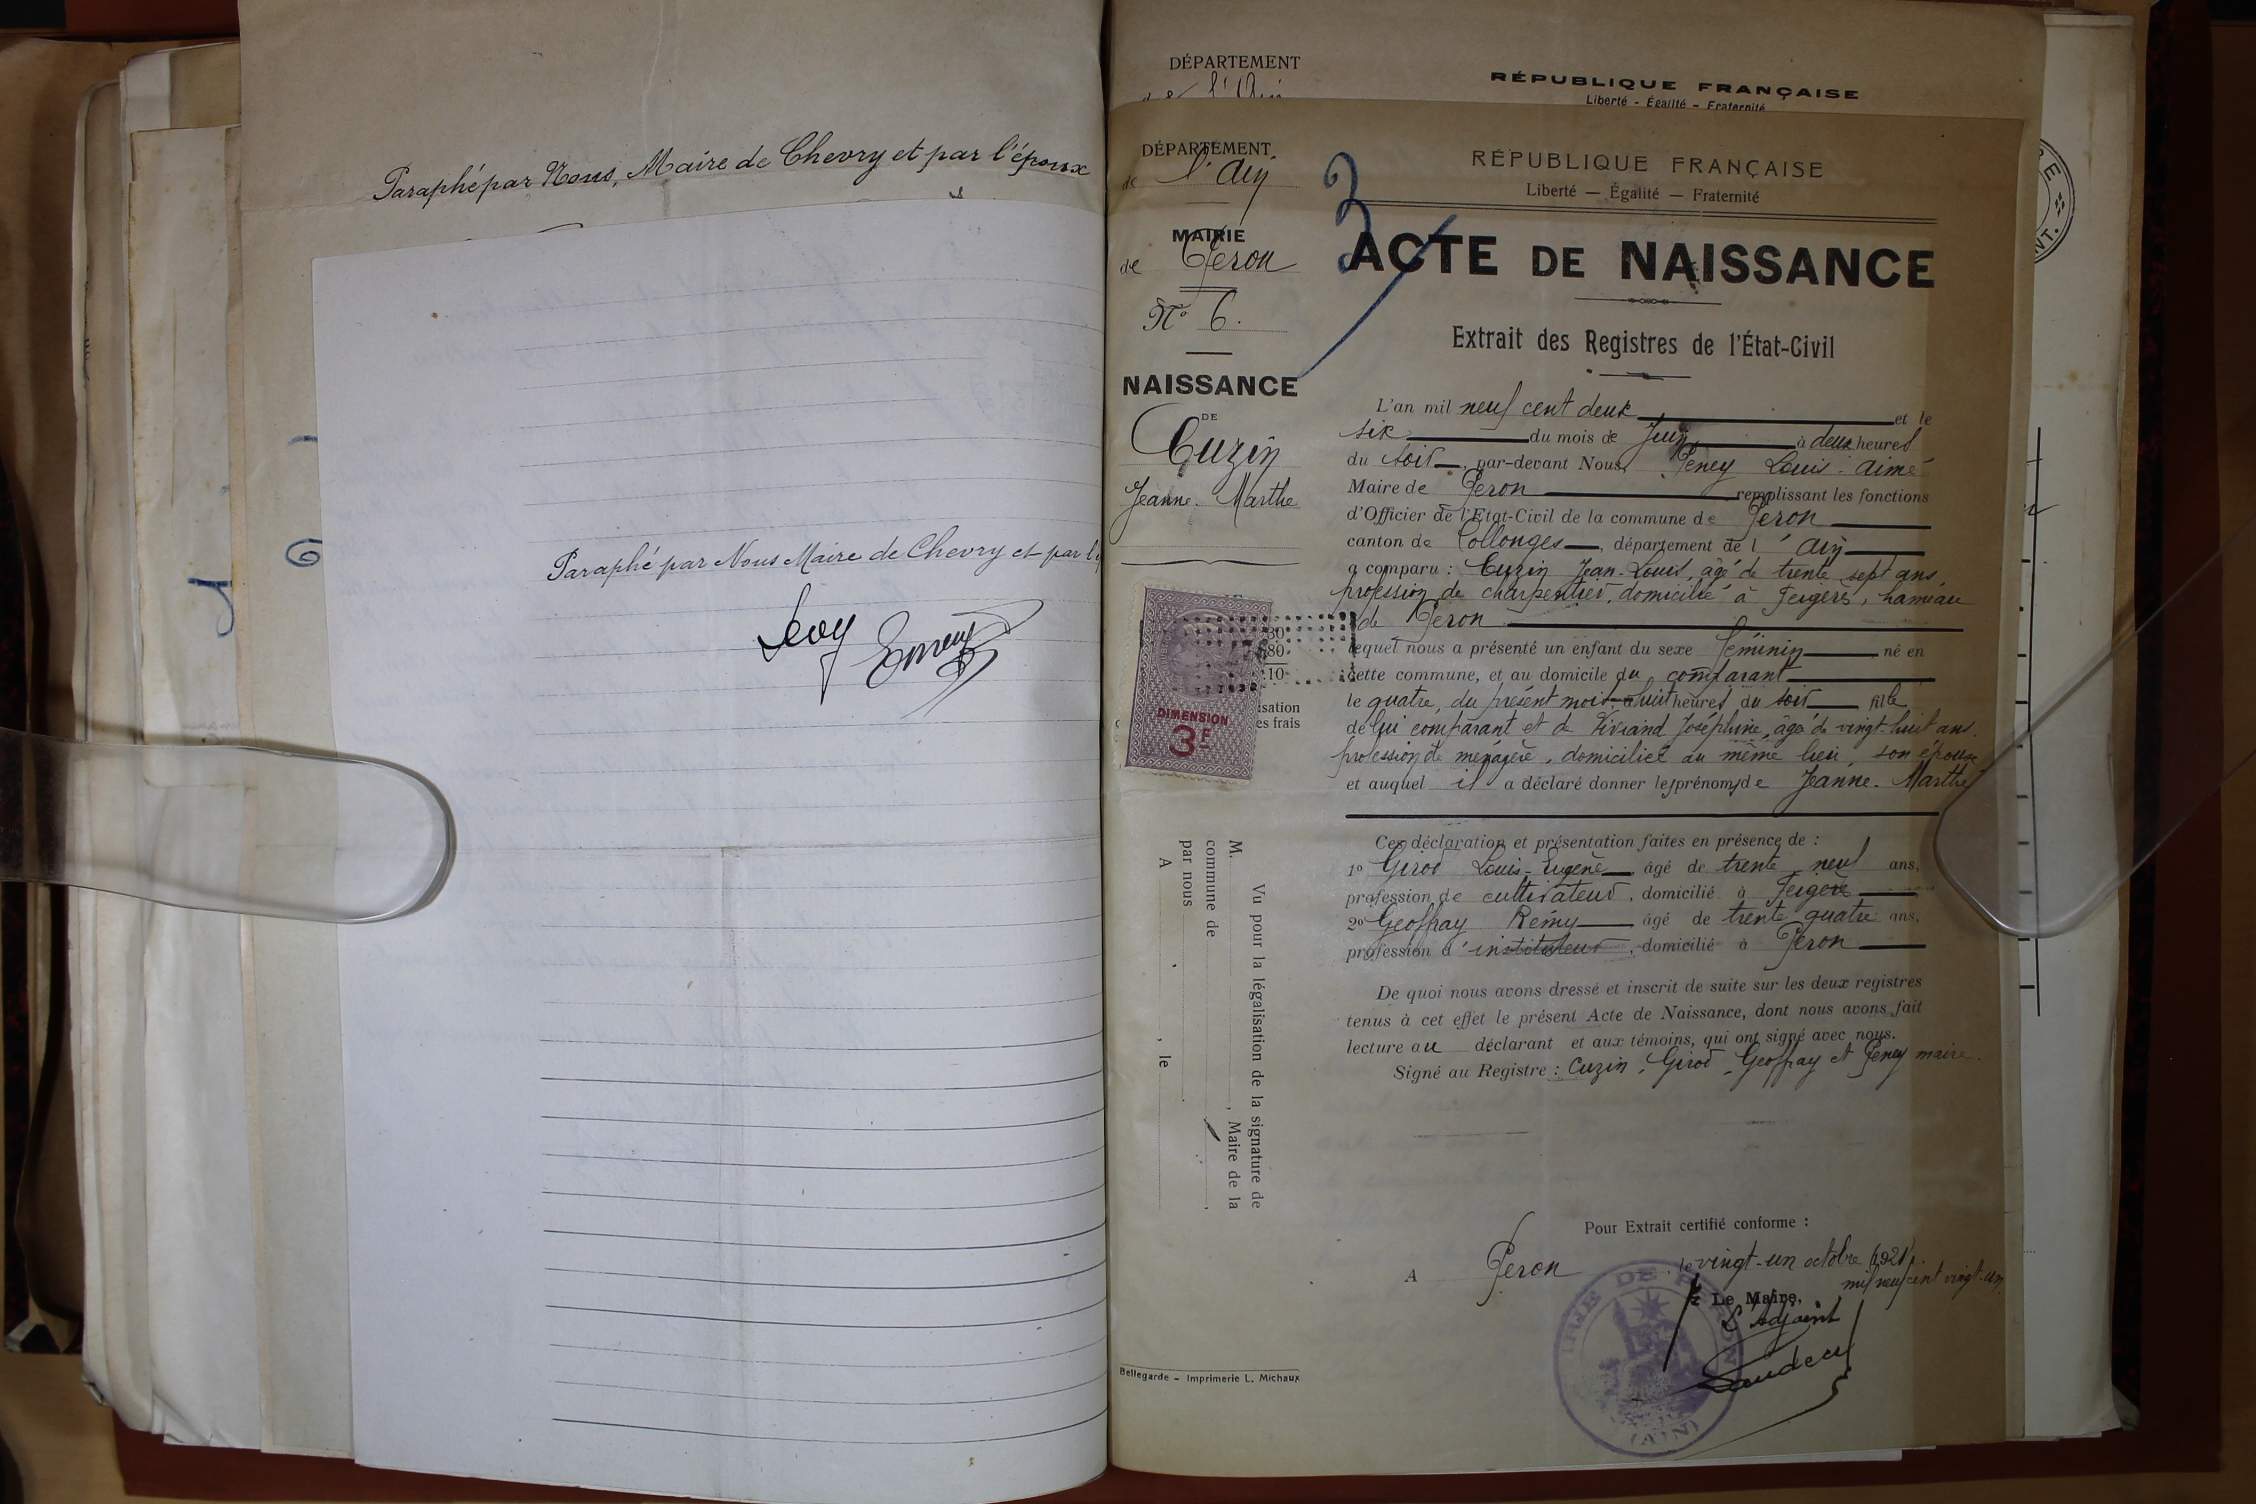 Paraphé par Nous, Maire de Chevry et par l'époux
Paraphé par Nous Maire de Chevry et par l'
DÉPARTEMENT
de l'Ain
RÉPUBLIQUE FRANÇAISE
Liberté - Égalité - Fraternité
DÉPARTEMENT
de l'Ain
MAIRIE
de Péron
N° 6.
NAISSANCE
DE
Cuzin
Jeanne-Marthe
DIMENSION
3F
isation
es frais
Vu pour la légalisation de la signature de
M. , Maire de la
commune de ,
par nous .
A , le
Bellegarde - Imprimerie L. Michaux
3
RÉPUBLIQUE FRANÇAISE
Liberté — Égalité — Fraternité
ACTE DE NAISSANCE
Extrait des Registres de l'État-Civil
L'an mil neuf cent deux et le
six du mois de Juin à deux heures
du soir, par-devant Nous, Peney Louis-Aimé
Maire de Péron remplissant les fonctions
d'Officier de l'Etat-Civil de la commune de Péron
canton de Collonges, département de l'Ain
a comparu : Cuzin Jean-Louis, âgé de trente sept ans,
profession de charpentier, domicilié à Feigères, hameau
de Péron
lequel nous a présenté un enfant du sexe féminin né en
cette commune, et au domicile du comparant
le quatre, du présent mois à huit heures du soir fille
de lui comparant et de Viviand Joséphine, âgée de vingt-huit ans,
profession de ménagère, domiciliée au même lieu, son épouse
et auquel il a déclaré donner les prénoms de Jeanne-Marthe
Ces déclaration et présentation faites en présence de :
1° Girod Louis-Eugène âgé de trente neuf ans,
profession de cultivateur, domicilié à Feigère
2° Geoffray Rémy âgé de trente quatre ans,
profession d'instituteur, domicilié à Péron
De quoi nous avons dressé et inscrit de suite sur les deux registres
tenus à cet effet le présent Acte de Naissance, dont nous avons fait
lecture au déclarant et aux témoins, qui ont signé avec nous.
Signé au Registre : Cuzin, Girod, Geoffray et Peney maire.
Pour Extrait certifié conforme :
A Péron le vingt-un octobre 1921.
mil neuf cent vingt-un
Le Maire,
L'Adjoint
MAIRIE DE PERON
(AIN)